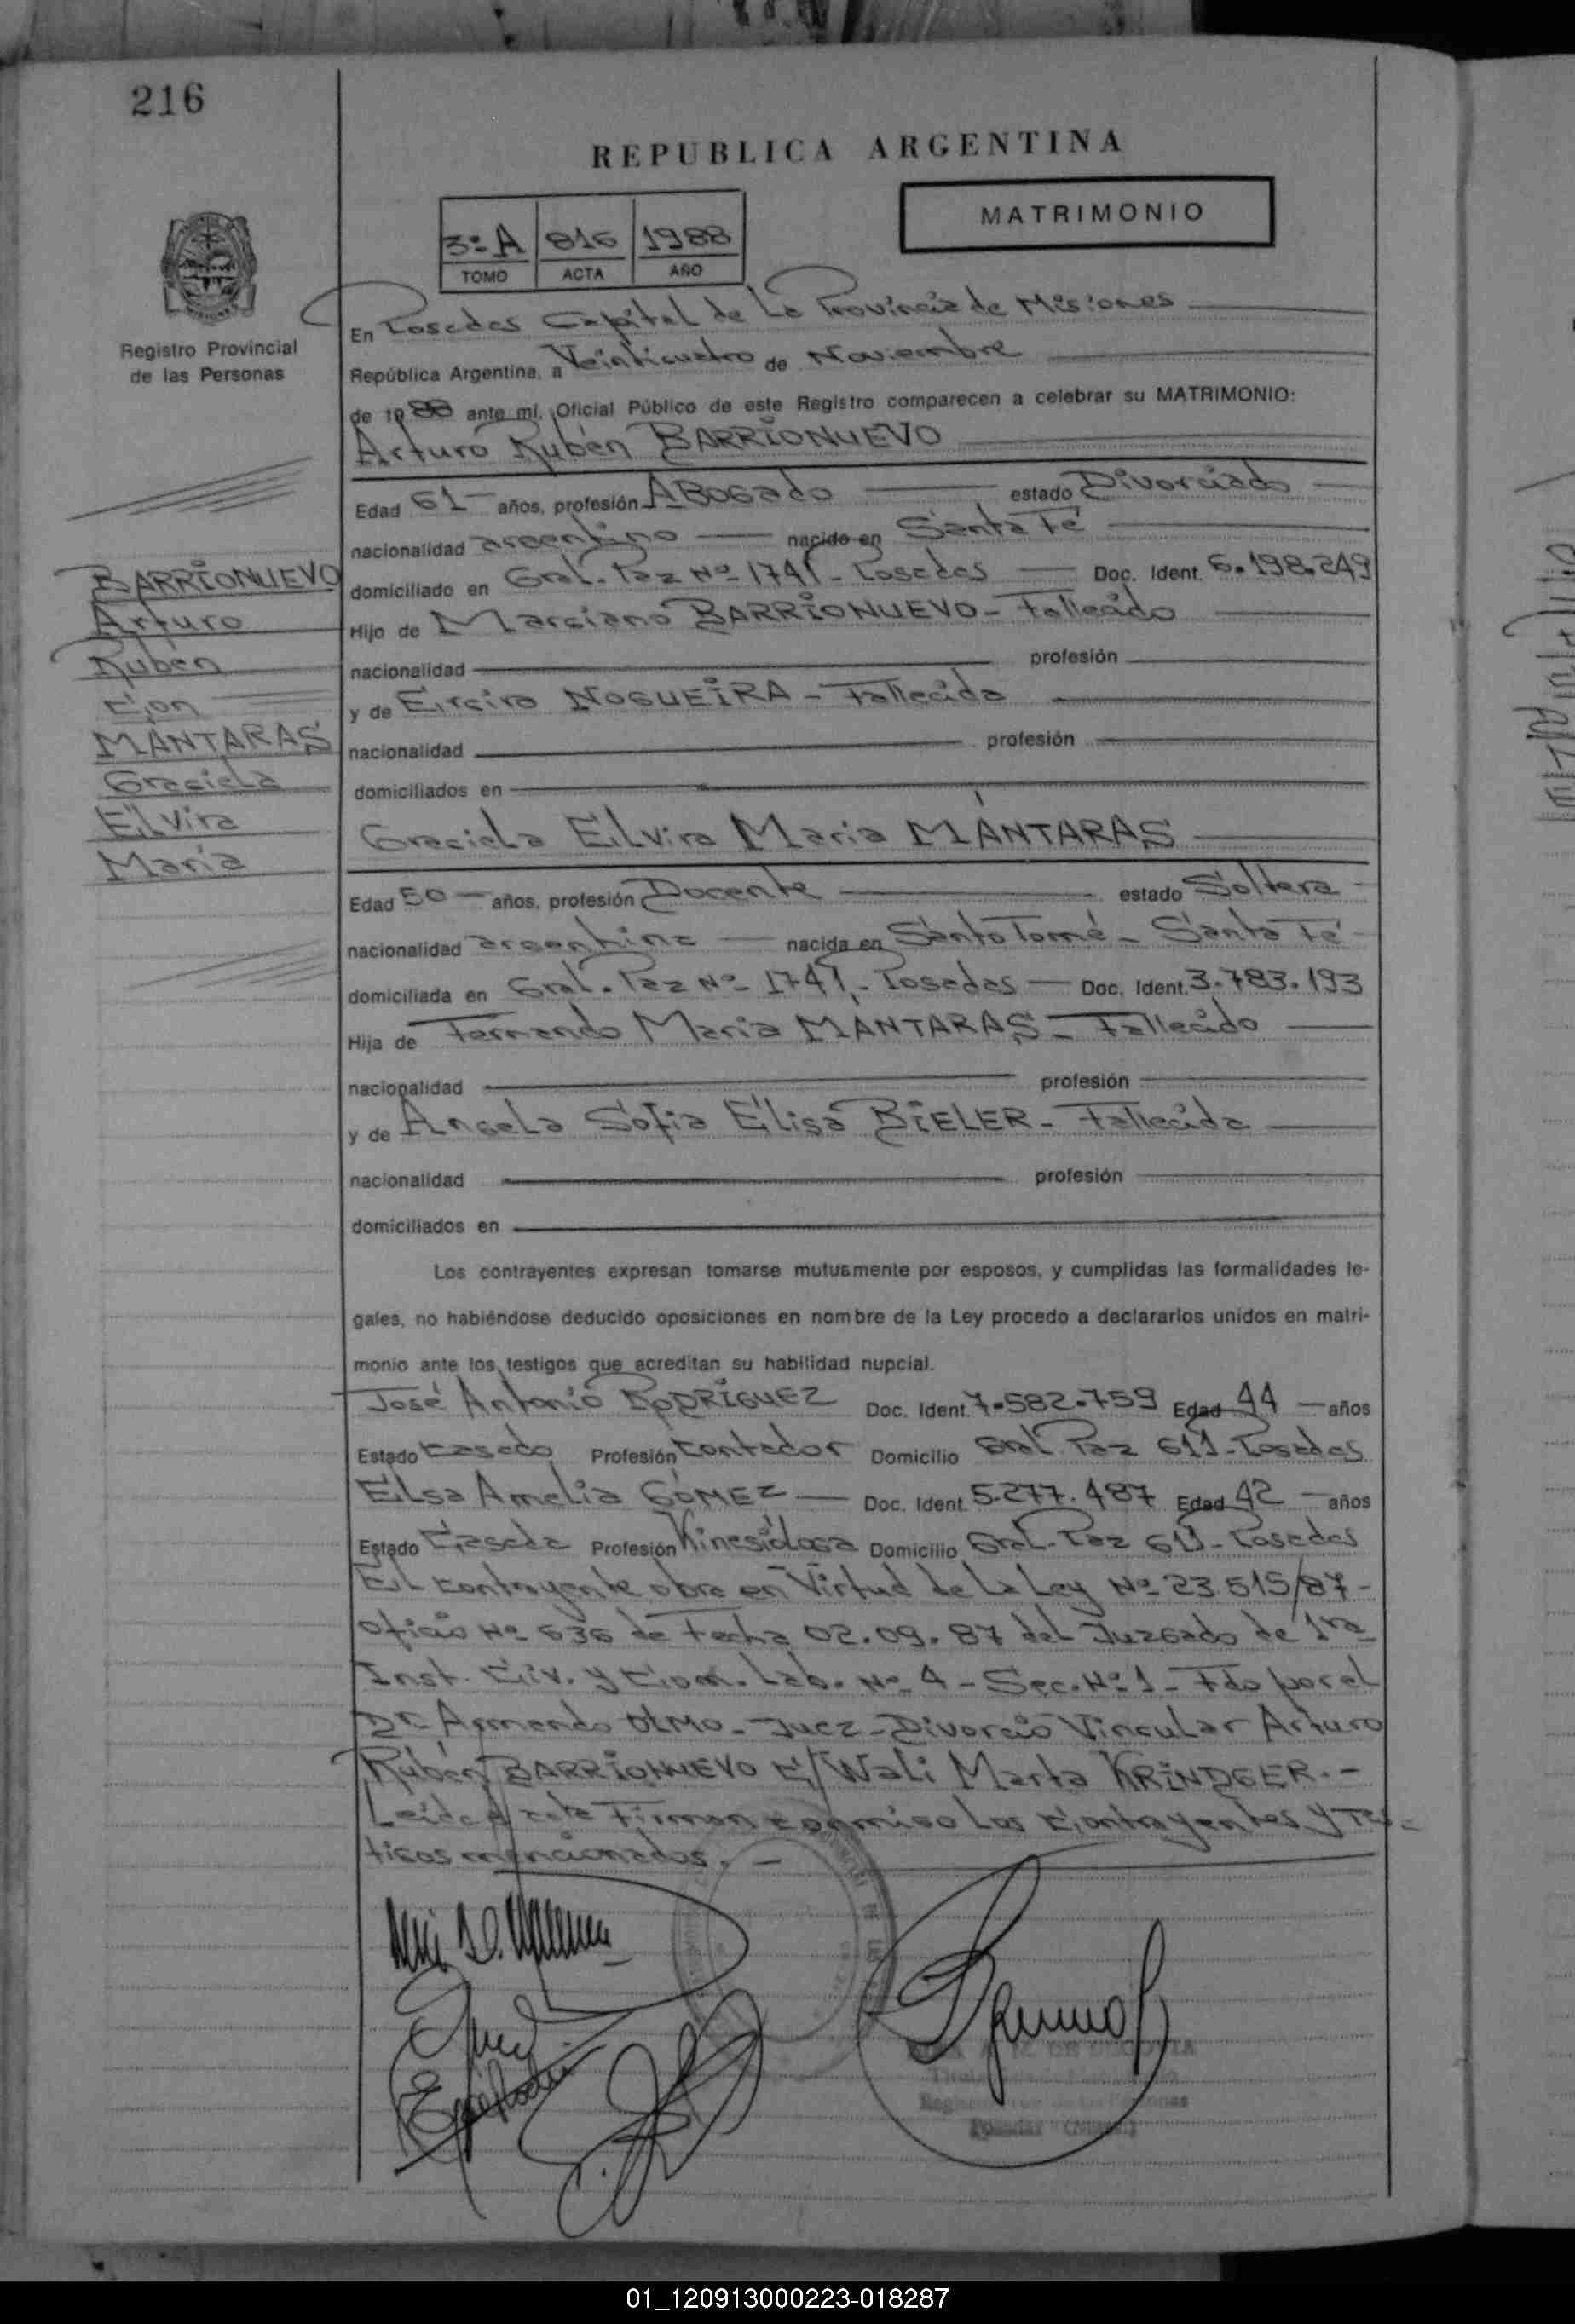 216
REPUBLICA ARGENTINA
MATRIMONIO
3º A 816 1988
TOMO ACTA AÑO
Registro Provincial
de las Personas
En Posadas Capital de La Provincia de Misiones
República Argentina, a Veinticuatro de Noviembre
de 1988 ante mi, Oficial Público de este Registro comparecen a celebrar su MATRIMONIO:
Arturo Rubén BARRIONUEVO
Edad 61 años, profesión Abogado estado Divorciado
nacionalidad argentino nacido en Santa Fé
domiciliado en Gral. Paz Nº 1741 - Posadas Doc. Ident. 6.198.249
Hijo de Marciano BARRIONUEVO - Fallecido
nacionalidad profesión
y de NOGUEIRA - Fallecida
nacionalidad profesión
domiciliados en
BARRIONUEVO
Arturo
Rubén
Con
MANTARAS
Graciela
Elvira
María
Graciela Elvira Maria MÁNTARAS
Edad 50 años, profesión Docente estado Soltera
nacionalidad argentina nacida en Santo Tomé - Santa Fé
domiciliada en Gral. Paz Nº 1741, - Posadas Doc. Ident. 3.783.193
Hija de Fernando Maria MANTARAS - Fallecido
nacionalidad profesión
y de Angela Sofia Elisa BIELER - Fallecida
nacionalidad profesión
domiciliados en
Los contrayentes expresan tomarse mutuamente por esposos, y cumplidas las formalidades le-
gales, no habiéndose deducido oposiciones en nombre de la Ley procedo a declararlos unidos en matri-
monio ante los testigos que acreditan su habilidad nupcial.
José Antonio RODRIGUEZ Doc. Ident. 7.582.759 Edad 44 años
Estado Casado Profesión Contador Domicilio Gral Paz 611 - Posadas
Elsa Amelia GÓMEZ Doc. Ident. 5.277.487 Edad 42 años
Estado Casada Profesión Kinesióloga Domicilio Gral. Paz 611 - Posadas
El contrayente obra en Virtud de La Ley Nº 23.515/87 -
Oficio Nº 636 de Fecha 02.09.87 del Juzgado de 1ra
Inst. Civ. y Com. Lab. Nº 4 - Sec. Nº 1 - Fdo por el
Dr. Armando OLMO - Juez - Divorcio Vincular Arturo
Rubén BARRIONUEVO C/ Wali Marta KRINDGER. -
Leida el acta Firman conmigo Los Contrayentes y Tes-
tigos mencionados. -
01_120913000223-018287